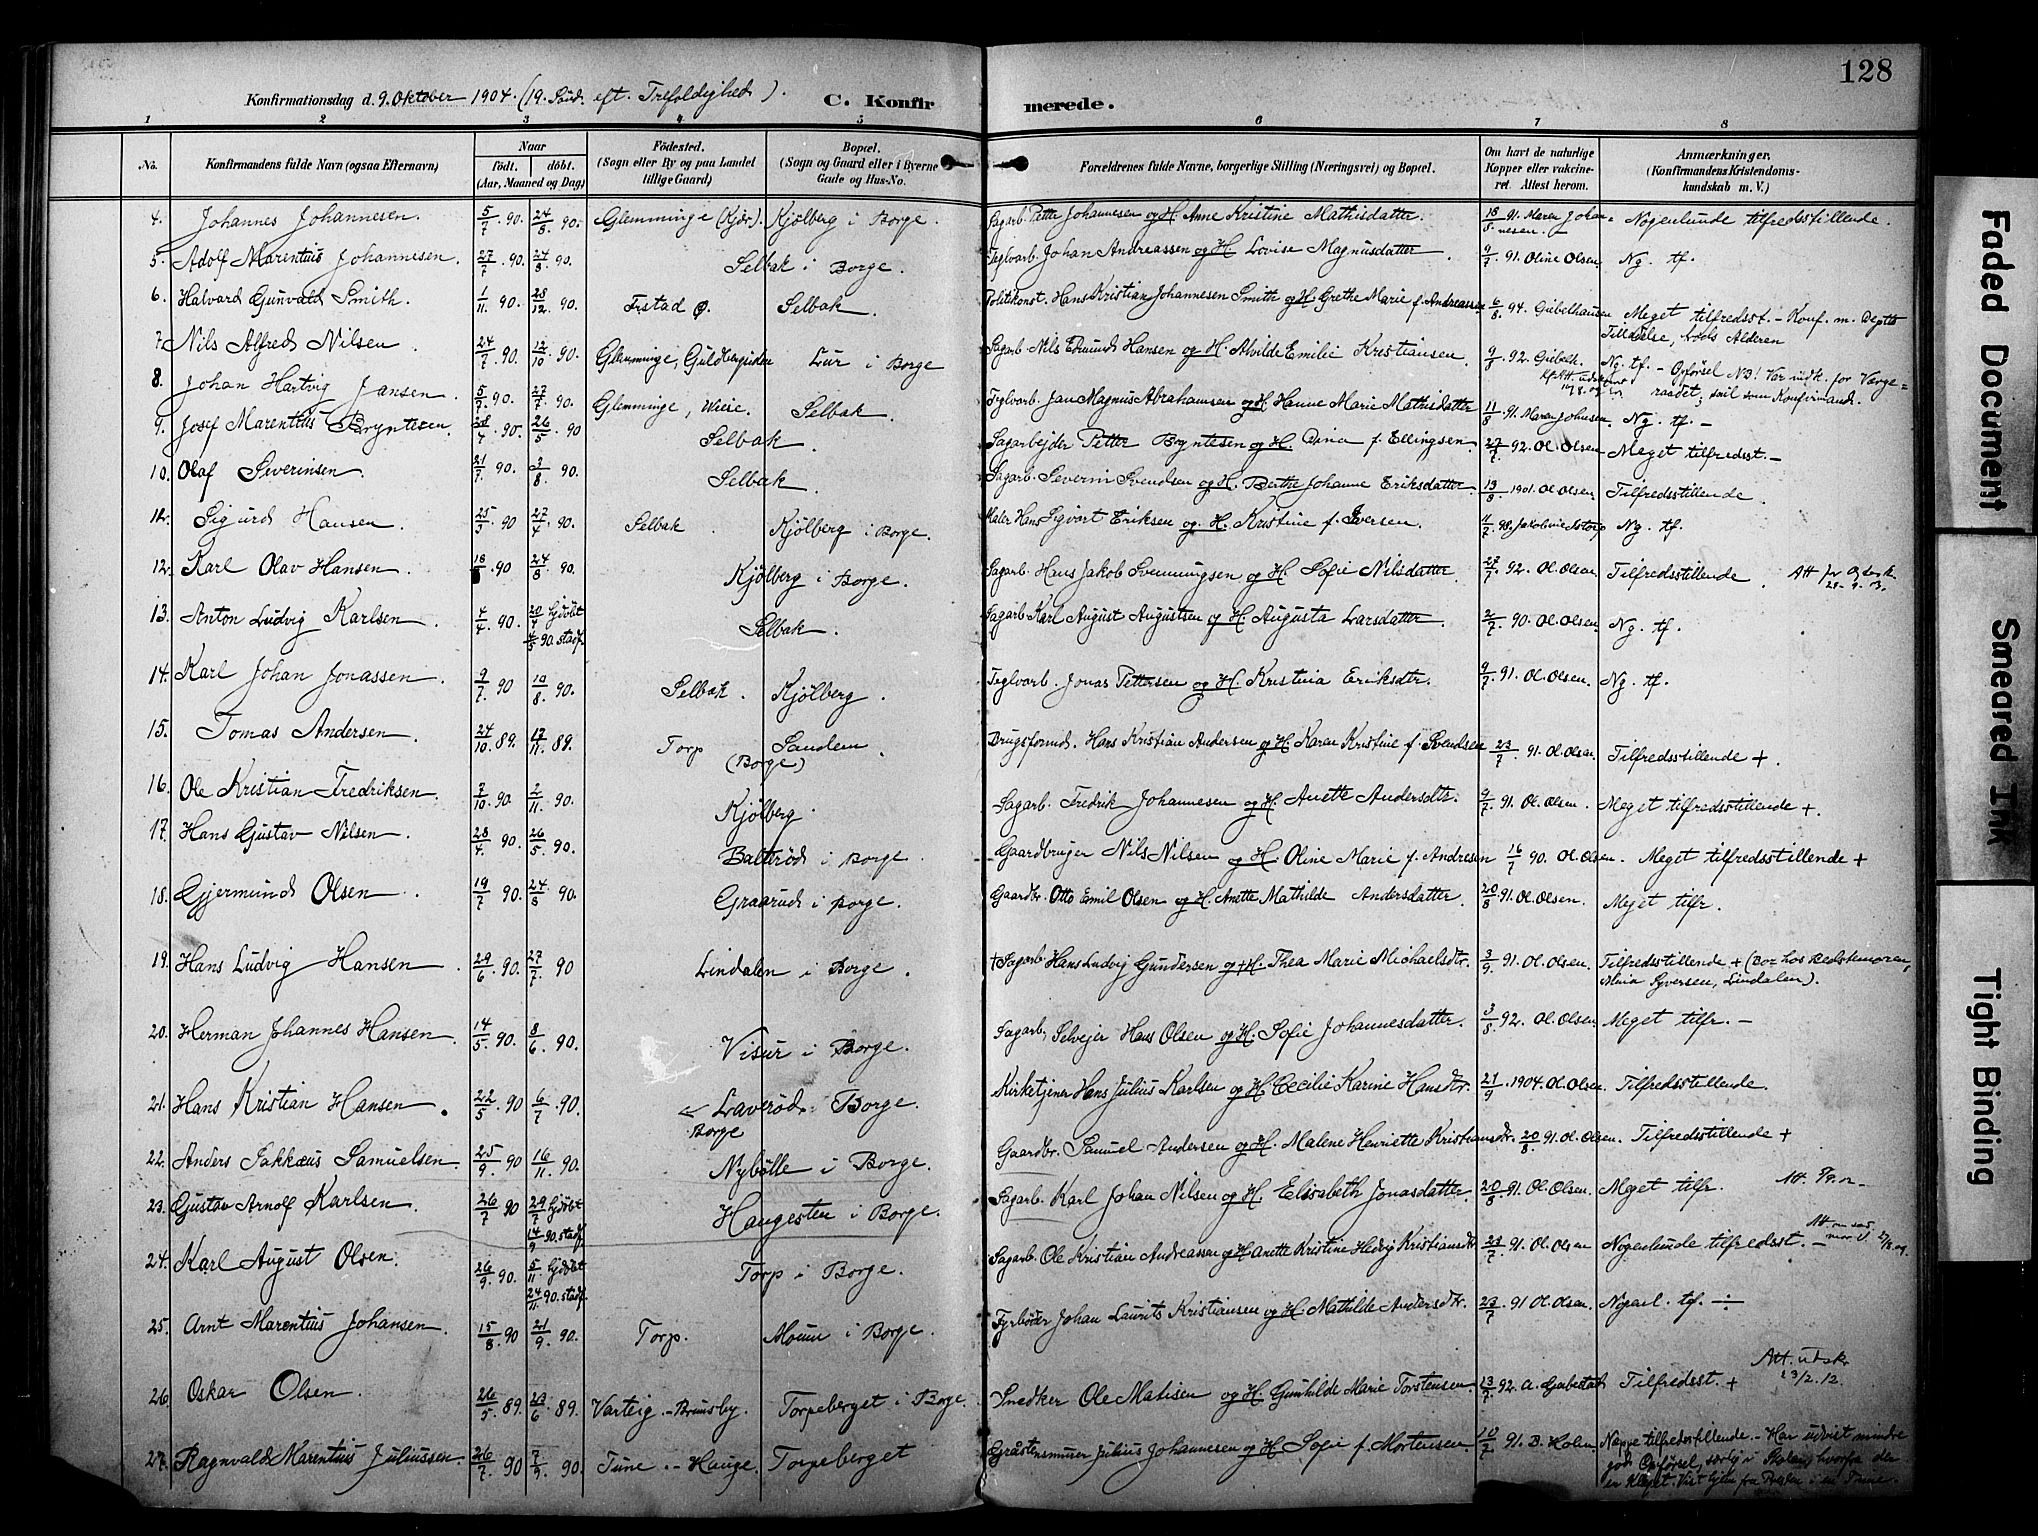 128
Konfirmationsdag d. 9. Oktober 1904. (19. Sönd. eft. Trefoldighed). C. Konfirmerede.
1 2 3 4 5 6 7 8
No. Konfirmandens fulde Navn (ogsaa Efternavn) Naar født. døbt. (Aar, Maaned og Dag) Fødested. (Sogn eller By og paa Landet tillige Gaard) Bopæl. (Sogn og Gaard eller i Byerne Gade og Hus-No. Forældrenes fulde Navne, borgerlige Stilling (Næringsvei) og Bopæl. Om havt de naturlige Kopper eller vakcineret. Attest herom. Anmærkninger. (Konfirmandens Kristendomskundskab m. V.)
4. Johannes Johannesen. 5/7 90. 24/8 90. Glemminge (Kjör). Kjölberg i Borge. Sagarb. Petter Johannesen og H. Anne Kristine Mathisdatter. 18/8 91. Maren Johannesen. Nogenlunde tilfredsstillende.
5. Adolf Marentius Johannesen. 27/7 90. 24/8 90. Selbak i Borge. Teglvarb. Johan Andreassen og H. Lovise Magnusdatter. 9/7 91. Oline Olsen. Ng. tf.
6. Halvard Gunvald Smith. 1/11 90. 28/12 90. Fr.stad Selbak. Politikonst. Hans Kristian Johannesen Smith og H. Grethe Marie f. Andreassen 6/8 94. Gubelhausen Meget tilfredsst. - Konf. m. Depts Tilladelse, Alderen
7. Nils Alfred Nilsen. 24/7 90. 12/10 90. Glemminge, Guldbergsiden Lur i Borge Sagarb. Nils Edmund Hansen og H. Alvilde Emilie Kristiansen. 9/7 92. Ng. tf. - Opförsel NB! Var indk. for Værgeraadet, som Konfirmand.
8. Johan Hartvig Jansen. 5/7 90. 27/7 90. Glemminge, Weie. Selbak. Teglvarb. Jan Magnus Abrahamsen og H. Hanne Marie Mathisdatter 11/8 91. Maren Johnsen. Ng. tf. -
9. Josef Marentius Bryntesen. 28/4 90. 26/5 90 Selbak. Sagarbejder Petter Bryntesen og H. Dina f. Ellingsen. 27/7 92. Ol. Olsen Meget tilfredsst. -
10. Olaf Severinsen. 21/7 90. 3/8 90. Selbak. Sagarb. Severin Svendsen og H. Berthe Johanne Eriksdatter. 13/8 1901. Ol. Olsen Tilfredsstillende
Sigurd Hansen. 90 27/4 90. Selbak. Kjölberg i Borge. Maler Hans Sigvart Eriksen og H. Kristine f. Iversen. 98. Ng. tf.
12. Karl Olav Hansen. 18 90 24/8 90. Kjölberg i Borge. Sagarb. Hans Jakob Svenningsen og H. Sofie Nilsdatter. 27/7 92. Ol. Olsen Tilfredsstillende.
13. Anton Ludvig Karlsen. 4/4 90. 20/4 hjdöbt 4/5 90. stadf. Selbak. Sagarb. Karl August Augustsen og H. Augusta Larsdatter. 2/7 90. Ol. Olsen Ng. tf.
14. Karl Johan Jonassen. 9/7 90 10/8 90. Selbak. Kjölberg. Teglvarb. Jonas Pettersen og H. Kristina Eriksdtr. 9/7 91. Ol. Olsen. Ng. tf.
15. Tomas Andersen. 24/10 89. 17/11 89. Torp (Borge) Sandem. Brugsformd. Hans Kristian Andersen og H. Karen Kristine f. Svendsen 23/7 91. Ol. Olsen. Tilfredsstillende +.
16. Ole Kristian Fredriksen. 7/10 90. 2/11 90. Kjölberg. Sagarb. Fredrik Johannesen og H. Anette Andersdtr. 9/7 91. Ol. Olsen. Meget tilfredsstillende +
17. Hans Gustav Nilsen. 28/4 90. 26/5 90. Balteröd i Borge. Gaardbruger Nils Nilsen og H. Oline Marie f. Andresen 16/7 90. Ol. Olsen. Meget tilfredsstillende +
18. Gjermund Olsen. 19/7 90. 24/8 90. Graarud i Borge. Gaardbr. Otto Emil Olsen og H. Anette Mathilde Andersdatter. 20/8 91. Ol. Olsen. Meget tilfr.
19. Hans Ludvig Hansen. 29/6 90. 27/7 90 Lindalen i Borge. +Sagarb. Hans Ludvig Gundersen og +H. Thea Marie Michaelsdtr. 3/9 91. Ol. Olsen. Tilfredsstillende + (Bor hos Bedstemoren, Syversen, Lindalen).
20. Herman Johannes Hansen. 14/5 90. 8/6 90. Visur i Borge. Sagarb., Selvejer Hans Olsen og H. Sofie Johannesdatter. 3/8 92. Ol. Olsen Meget tilfr. -
21. Hans Kristian Hansen. 22/5 90 6/7 90. Laveröd. Borge. Kirketjener Hans Julius Karlsen og H. Cecilie Karine Hansdtr. 21/9 1904. Ol. Olsen. Tilfredsstillende.
Borge
22. Anders Sakkæus Samuelsen. 25/9 90 16/11 90. Nybölle i Borge. Gaardbr. Samuel Andersen og H. Malene Henriette Kristiansdtr. 20/8 91. Ol. Olsen. Tilfredsstillende +
23. Gustav Arnolf Karlsen. 26/7 90 29/7 hjdöbt 14/9 90. stadf. Haugesten i Borge. Sagarb. Karl Johan Nilsen og H. Elisabeth Jonasdatter. 20/8 91. Ol. Olsen. Meget tilfr.
24. Karl August Olsen. 26/9 90. 5/11 hjdöbt 24/11 90. stadf. Torp i Borge. Sagarb. Ole Kristian Andreassen og H. Anette Kristine Hedvig Kristiansdtr 23/7 91. Ol. Olsen Nogenlunde tilfredsst. -
25. Arnt Marentius Johansen. 15/8 90 21/9 90. Torp. Moum i Borge. Fyrböder Johan Laurits Kristiansen og H. Mathilde Andersdtr. 23/7 91 Ol. Olsen. tf. ÷
26. Oskar Olsen. 26/5 89. 23/6 89. Varteig - Brunsby. Torpeberget i Borge. Snedker Ole Matisen og H. Gunhilde Marie Torstensen. 13/7 92. Tilfredsst. + Att. udsk. 23/2. 12.
27. Ragnvald Marentius Juliussen. 26/7 90 7/9 90. Tune - Hauge. Torpeberget Gråstensmurer Julius Johannesen og H. Sofie f. Mortensen 10/7 91. B. Holm. Neppe tilfredsstillende. - Har udvist mindre god Opförsel, særlig i Skolen, hvorfra der er klaget.
Faded Document
Smeared Ink
Tight Binding